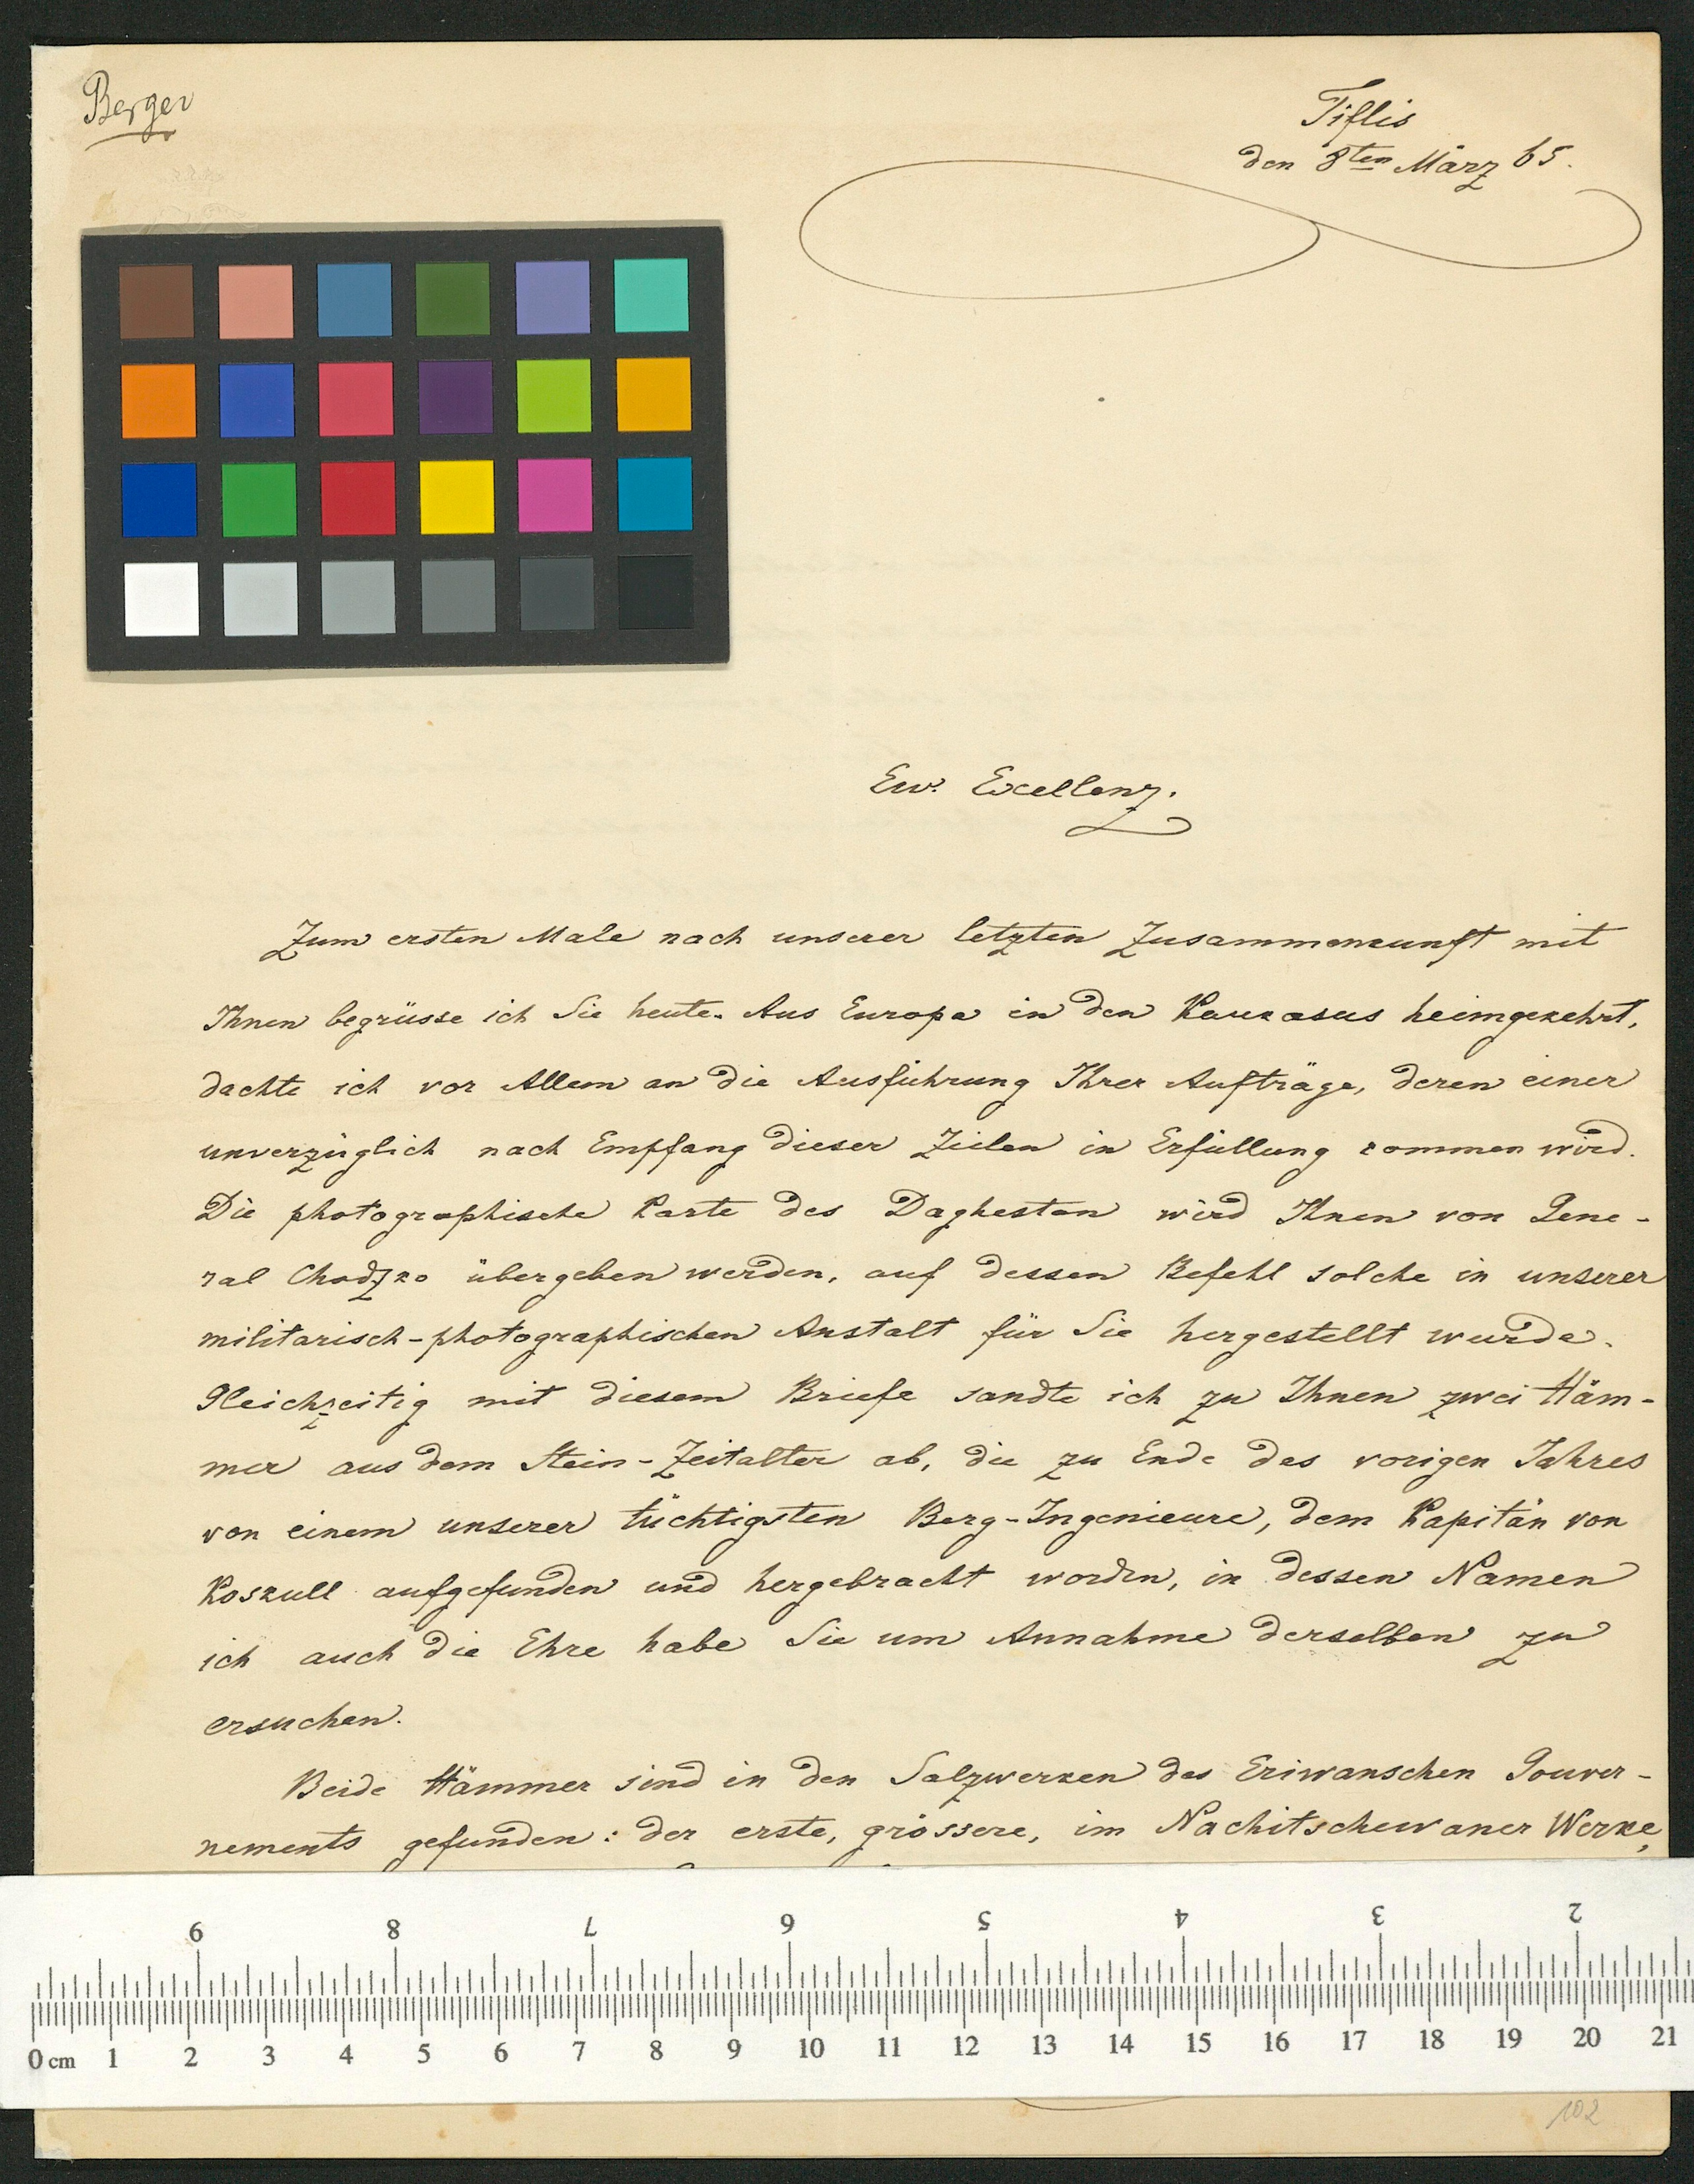 Berger
Tiflis
den 8ten März 65.
Ew. Excellenz.
Zum ersten Male nach unserer letzten Zusammenkunft mit
Ihnen begrüsse ich Sie heute. Aus Europa in den Kaukasus heimgekehrt,
dachte ich vor Allem an die Ausführung Ihrer Aufträge, deren einer
unverzüglich nach Empfang dieser Zeilen in Erfüllung kommen wird.
Die photographische Karte des Daghestan wird Ihnen von Gene-
ral Chodzko übergeben werden, auf dessen Befehl solche in unserer
militarisch-photographischen Anstalt für Sie hergestellt wurde.
Gleichzeitig mit diesem Briefe sandte ich zu Ihnen zwei Häm-
mer aus dem Stein-Zeitalter ab, die zu Ende des vorigen Jahres
von einem unserer tüchtigsten Berg-Ingenieure, dem Kapitän von
Koszull aufgefunden und hergebracht worden, in dessen Namen
ich auch die Ehre habe Sie um Annahme derselben zu
ersuchen.
Beide Hämmer sind in den Salzwerken des Eriwanschen Gouver-
nements gefunden: der erste, grössere, im Nachitschewaner Werke,
9 8 7 6 5 4 3 2
0 cm 1 2 3 4 5 6 7 8 9 10 11 12 13 14 15 16 17 18 19 20 21
102